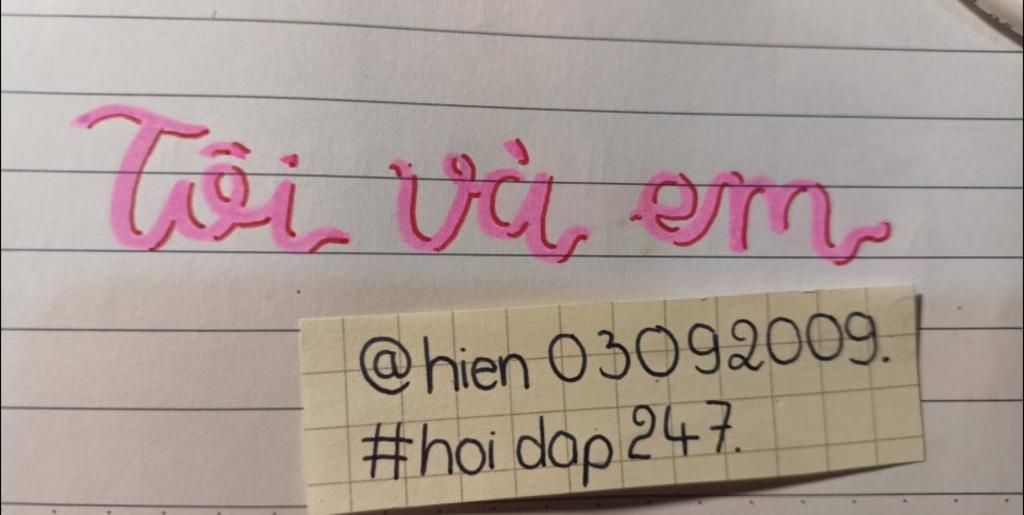 Tôi và em
@hien 03092009.
#hoi dap 247.